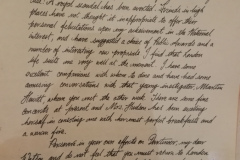 A royal scandal has been averted. Friends in high
places have not thought it inappropriate to offer their
personal felicitations upon my achievement in the National
interest, and have suggested a choice of Public Rewards and a
number of interesting new proposals. I find that London
life suits me very well at the moment. I have some
excellent companions with whom to dine and have had some
amusing conversations with that young intelligence, Martin
Hewitt, whom you met the other week. There are some fine
concerts at present and Mrs. Hudson has been exerting
herself in enticing me with her most perfect breakfasts and
a warm fire.
Persevere in your own efforts on Dartmoor, my dear
and do not feel that you must return to London